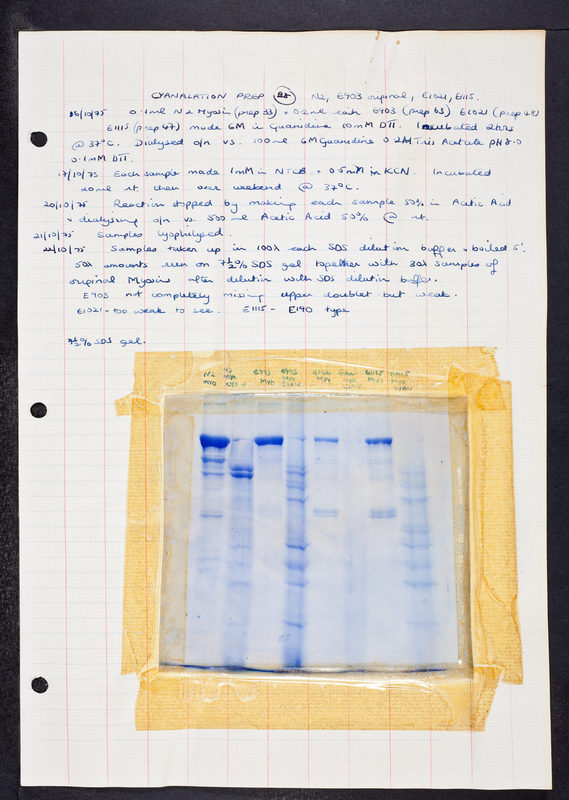 CYANALATION PREP 28 N2, E903 original, E1021, E1115.
16/10/75 0.1ml N2 Myosin (prep 33) + 0.2ml each E903 (prep 63) E1021 (prep 48)
E1115 (prep 47) made 6M in Guanidine 10mM DTT. Incubated 2hrs
@ 37°C. Dialysed o/n vs. 100ml 6M Guanidine 0.2M Tris Acetate pH 8.0
0.1mM DTT.
17/10/75 Each sample made 1mM in NTCB + 0.5mM in KCN. Incubated
20min rt. then over weekend @ 37°C.
20/10/75 Reaction stopped by making each sample 50% in Acetic Acid
+ dialysing o/n vs. 500ml Acetic Acid 50% @ rt.
21/10/75 Samples lyophilysed.
22/10/75 Samples taken up in 100λ each SDS dilution buffer + boiled 5'.
50λ amounts run on 7½% SDS gel together with 30λ samples of
original Myosin after dilution with SDS dilution buffer.
E903 not completely missing upper doublet but weak.
E1021 - too weak to see. E1115 - E190 type
7½% SDS gel.
N2 MYO N2 MYO CYAN E903 MYO E903 MYO CYAN E1021 MYO E1115 MYO E1115 MYO CYAN